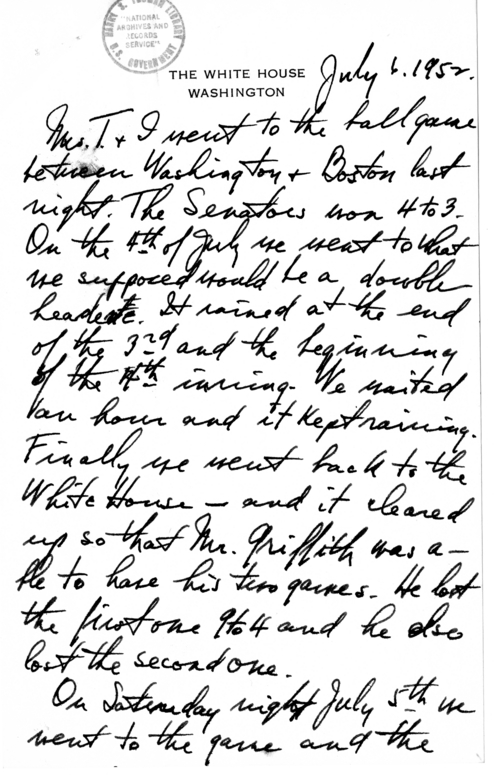 HARRY S. TRUMAN LIBRARY
"NATIONAL
ARCHIVES AND
RECORDS
SERVICE"
U.S. GOVERNMENT
THE WHITE HOUSE
WASHINGTON
July 6. 1952.
Mrs. T. & I went to the ball game
between Washington & Boston last
night. The Senators won 4 to 3.
On the 4th of July we went to what
we supposed would be a double
header. It rained at the end
of the 3rd and the beginning
of the 4th inning. We waited
an hour and it kept raining.
Finally we went back to the
White House – and it cleared
up so that Mr. Griffith was a-
ble to have his two games. He lost
the first one 9 to 4 and he also
lost the second one.
On Saturday night July 5th we
went to the game and the